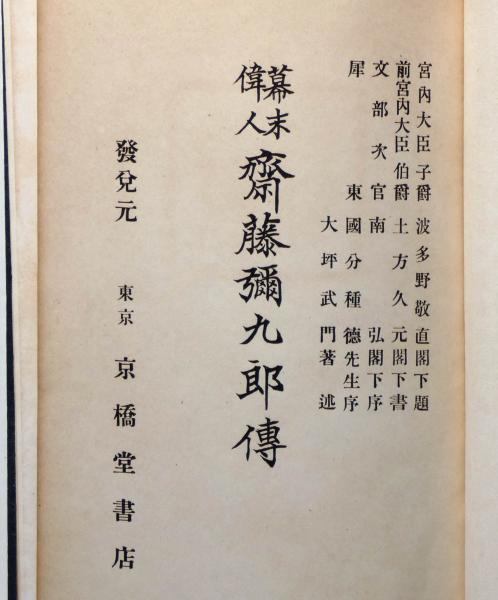 宮內大臣子爵 波多野敬直閣下題
前宮內大臣伯爵 土方久元閣下書
文部次官 南弘閣下序
犀東 國分種德先生序
大坪武門著述
幕末
偉人
齋藤彌九郎傳
發兌元 東京 京橋堂書店